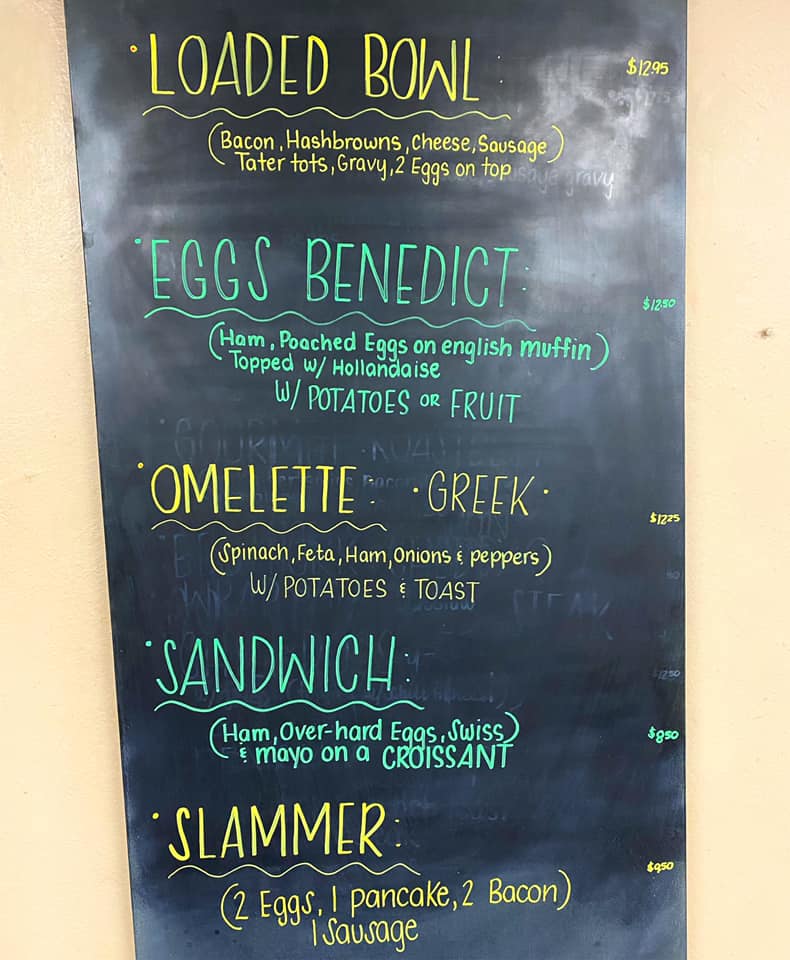 · LOADED BOWL :
$12.95
(Bacon, Hashbrowns, Cheese, Sausage)
Tater tots, Gravy, 2 Eggs on top
gravy
· EGGS BENEDICT:
$12.50
(Ham, Poached Eggs on english muffin)
Topped w/ Hollandaise
W/ POTATOES OR FRUIT
· OMELETTE: · GREEK ·
$12.25
(Spinach, Feta, Ham, Onions & peppers)
W/ POTATOES & TOAST
STEAK
· SANDWICH:
(Ham, Over-hard Eggs, Swiss)
$8.50
& mayo on a CROISSANT
· SLAMMER:
$9.50
(2 Eggs, 1 pancake, 2 Bacon)
1 Sausage